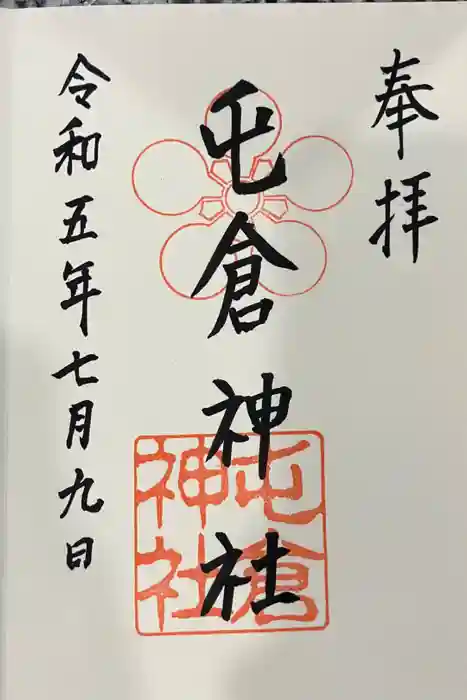 奉拝
屯倉神社
屯倉
神社
令和五年七月九日